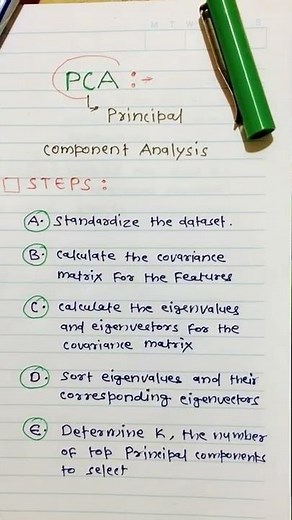 M T W S
PCA :→
Principal
component Analysis
STEPS :
A. Standardize the dataset.
B. Calculate the covariance
matrix for the Features
C. Calculate the eigenvalues
and eigenvectors for the
covariance matrix
D. Sort eigenvalues and their
corresponding eigenvectors
E. Determine K, the number
of top Principal components
to select